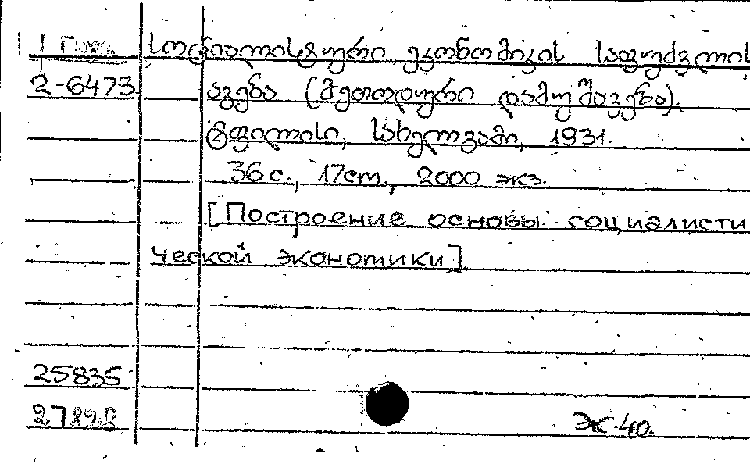 სოციალისტური ეკონომიკის საფუძვლის
2-6473 აგება (მეთოდური დამუშავება).
ტფილისი, სახელგამი, 1931.
36 с., 17cm., 2000 экз.
[Построение основы социалисти
ческой экономики]
25835
Ж-40.